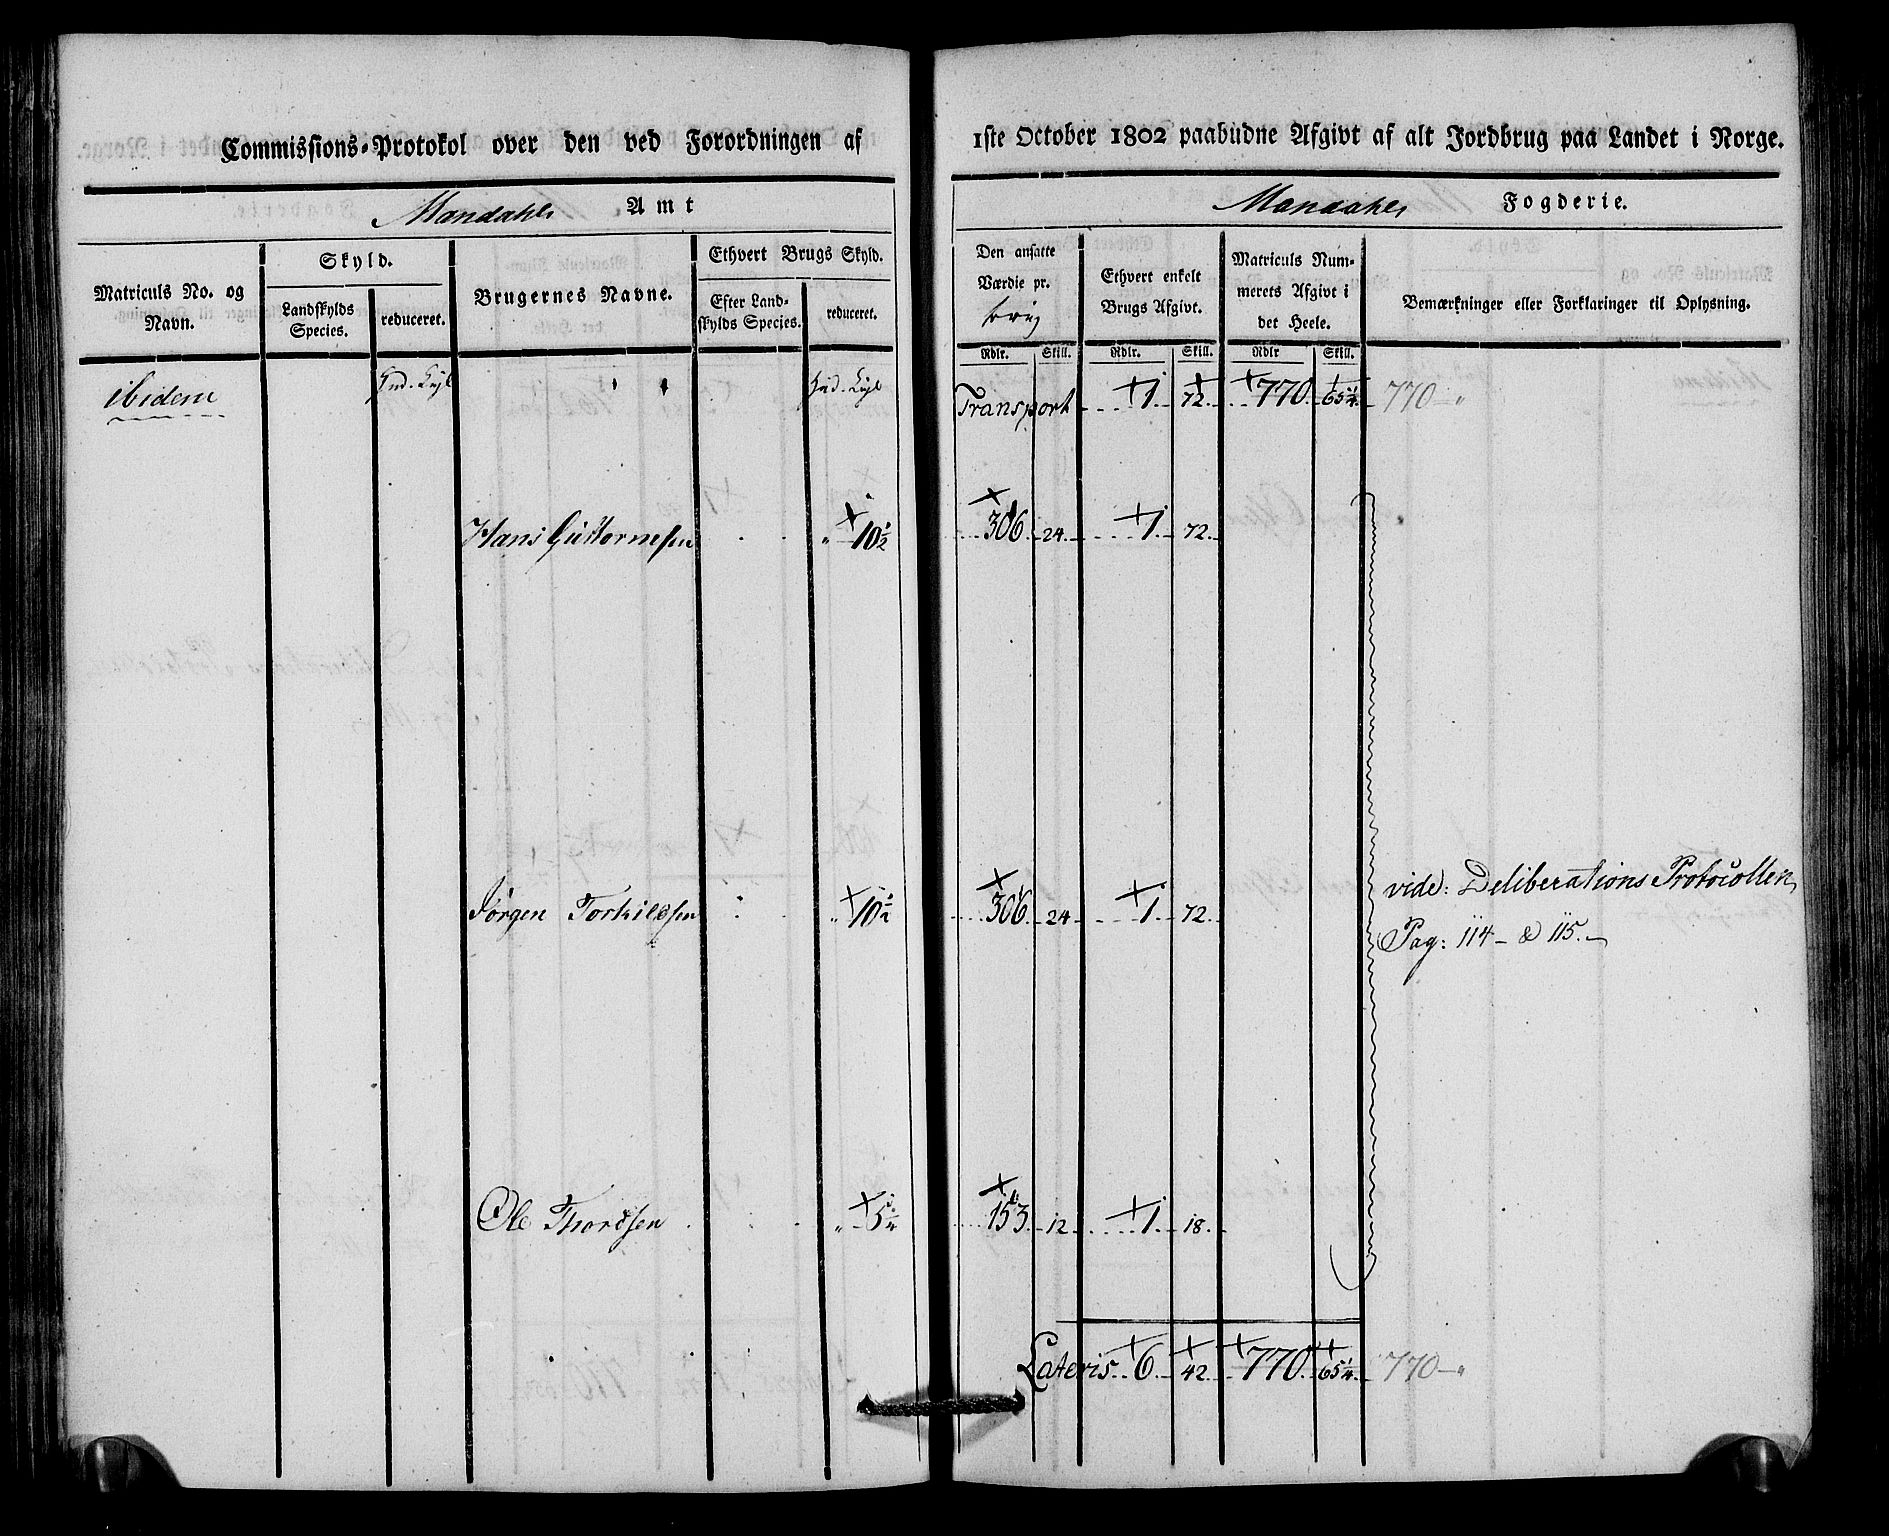 Commissions-Protokol over den ved Forordningen af 1ste October 1802 paabudne Afgivt af alt Jordbrug paa Landet i Norge.
Mandahls Amt
Mandahls Fogderie.
Matriculs No. og Navn.
Skyld.
Landskylds Species.
reduceret.
Brugernes Navne.
Ethvert Brugs Skyld.
Efter Landskylds Species.
reduceret.
Den ansatte Værdie pr.
Ethvert enkelt Brugs Afgivt.
Matriculs Nummerets Afgivt i det Heele.
Bemærkninger eller Forklaringer til Oplysning.
Rdlr. Skill. Rdlr. Skill. Rdlr Skill.
ibidem
Transport 1 72 770 65 1/4 770 "
Hans Guttormesen " 10 1/2 306 24 1 72
Jørgen Torkildsen " 10 1/2 306 24 1 72
vide: Deliberations Protocollen
Pag: 114 - & 115. -
Ole Thordsen " 5 1/4 153 12 1 18
Lateris 6 42 770 65 1/4 770 - "